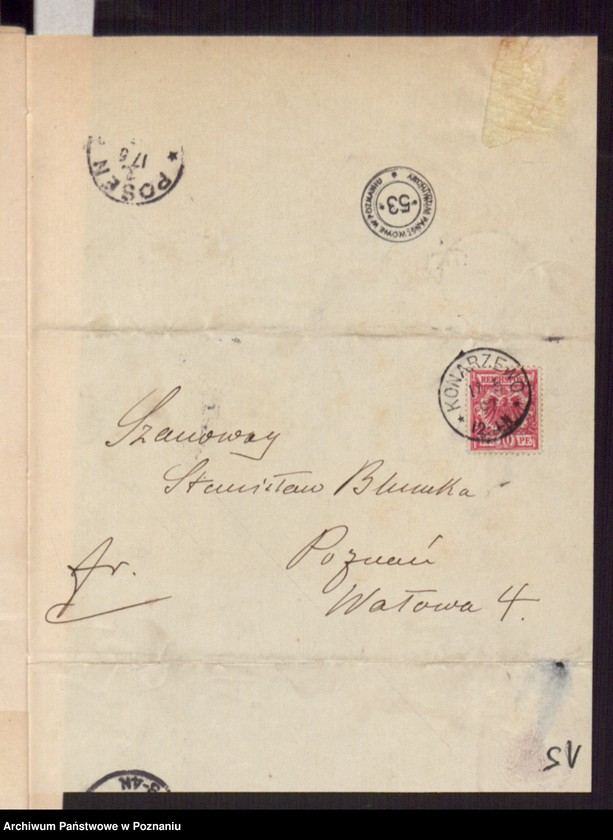 POSEN
17 8
ARCHIWUM PAŃSTWOWE W POZNANIU
53
KONARZEWO
REICHSPOST
10
Szanowny
Stanisław Blumka
Poznań
Wałowa 4.
fr.
3-4N
15
Archiwum Państwowe w Poznaniu